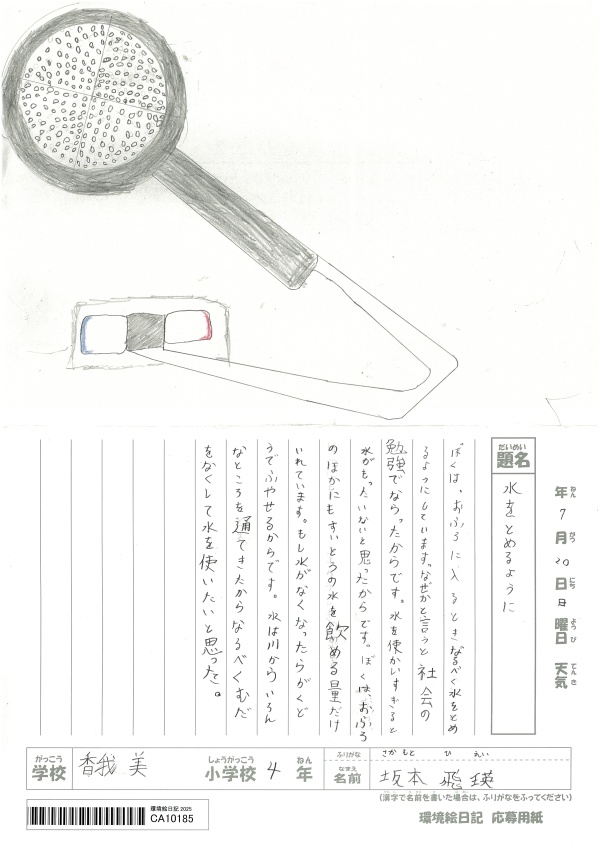 だいめい
題名
水をとめるように
年 7月 20日 日曜日 天気
ねん がつ にち ようび てんき
ぼくは、おふろに入るときなるべく水をとめ
るようにしています。なぜかと言うと社会の
勉強でならったからです。水を使かいすぎると
水がもったいないと思ったからです。ぼくは、おふろ
のほかにもすいとうの水を飲める量だけ
いれています。もし水がなくなったらがくど
うでふやせるからです。水は川からいろん
なところを通てきたからなるべくむだ
をなくして水を使いたいと思った。
がっこう しょうがっこう ねん ふりがな さかもと ひえい
学校 香我美 小学校 4年 なまえ 名前 坂本 飛瑛
(漢字で名前を書いた場合は、ふりがなをふってください)
環境絵日記 2025
CA10185
環境絵日記 応募用紙